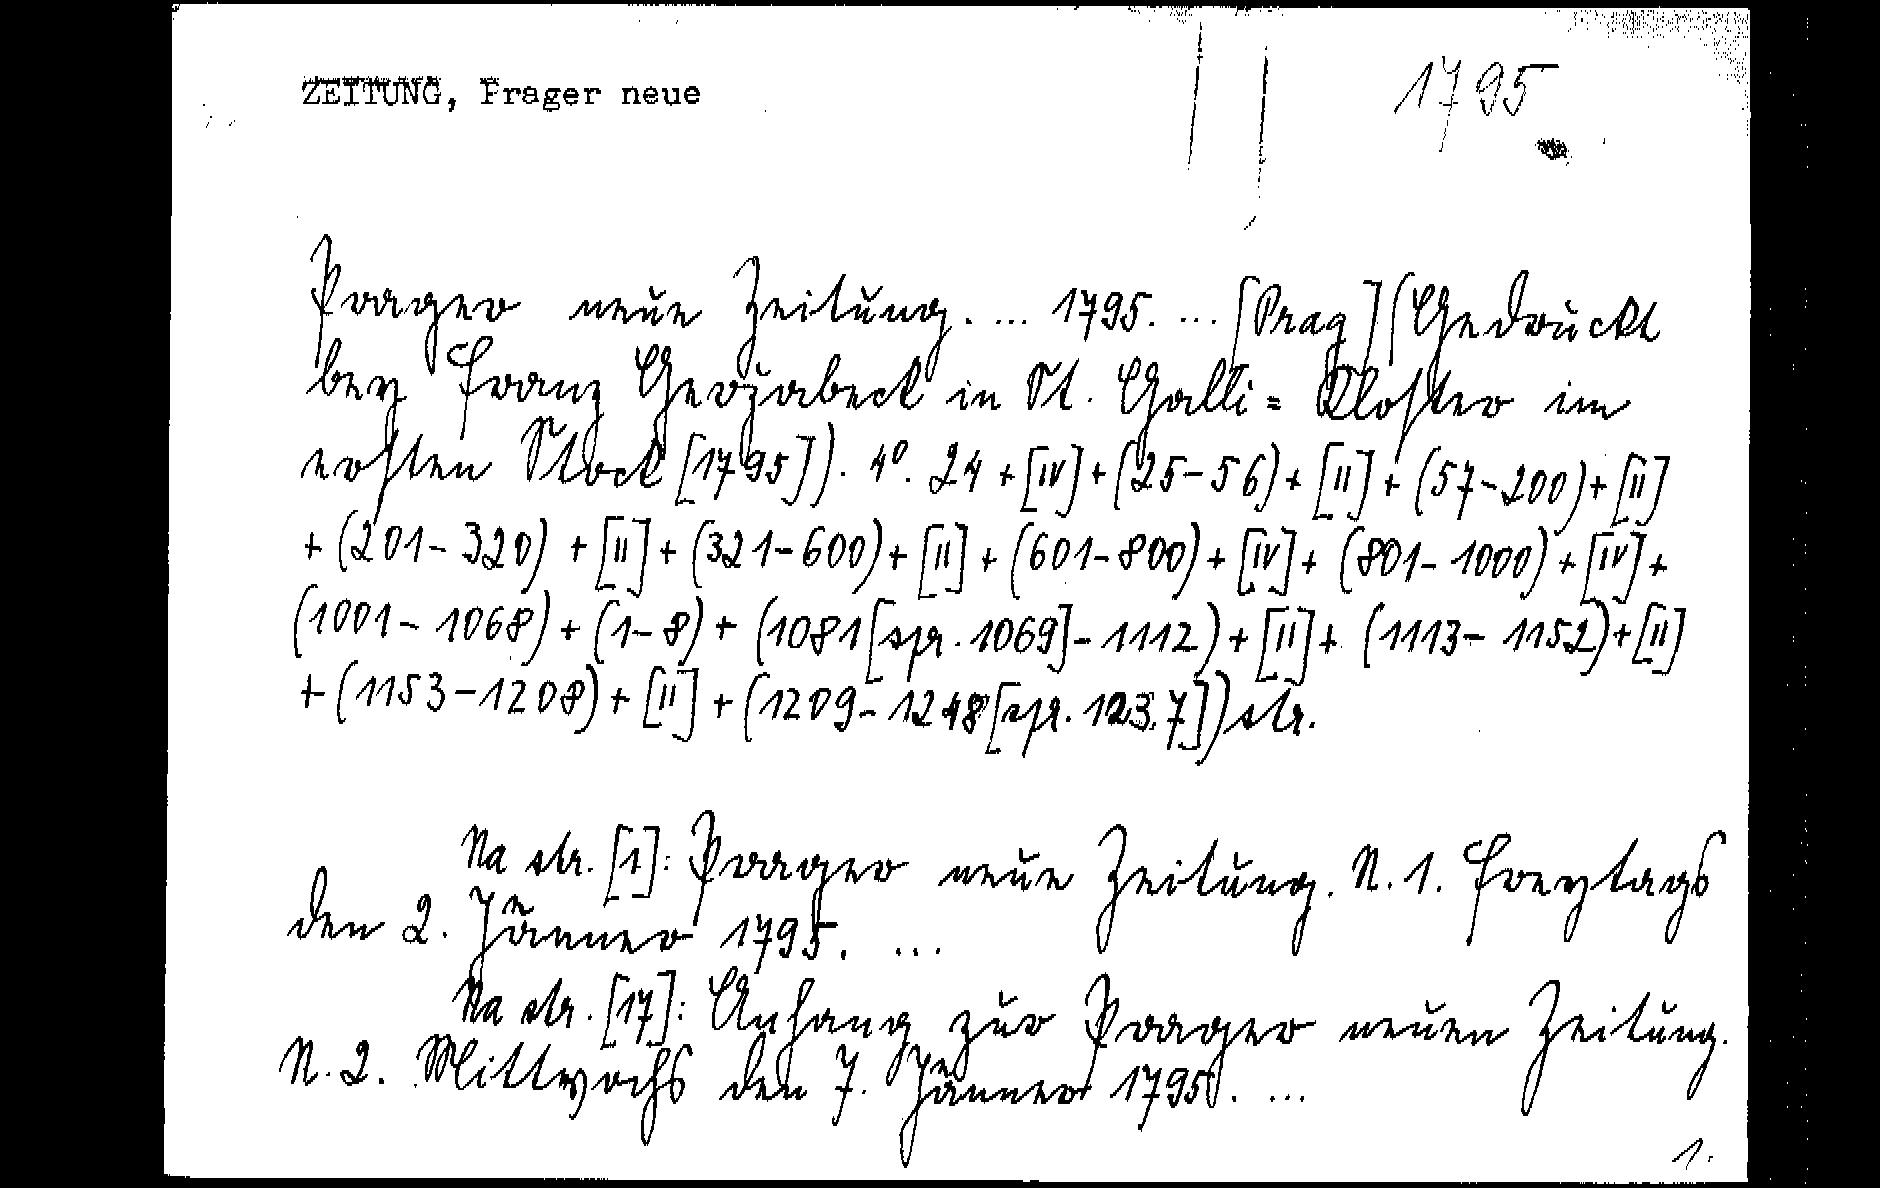 ZEITUNG, Prager neue
1795
Prager neue Zeitung. ... 1795. ... [Prag] (Gedruckt
bey Franz Gerzabeck in St. Galli=Kloster im
ersten Stock [1795]). 4°. 24 + [IV] + (25-56) + [II] + (57-200) + [II]
+ (201-320) + [II] + (321-600) + [II] + (601-800) + [IV] + (801-1000) + [IV] +
(1001-1068) + (1-8) + (1081 [spr. 1069]-1112) + [II] + (1113-1152) + [II]
+ (1153-1208) + [II] + (1209-1248 [spr. 1237]) str.
Na str. [1]: Prager neue Zeitung. N. 1. Freytags
den 2. Jänner 1795. ...
Na str. [17]: Anhang zur Prager neuen Zeitung.
N. 2. Mittwochs den 7. Jänner 1795. ...
1.